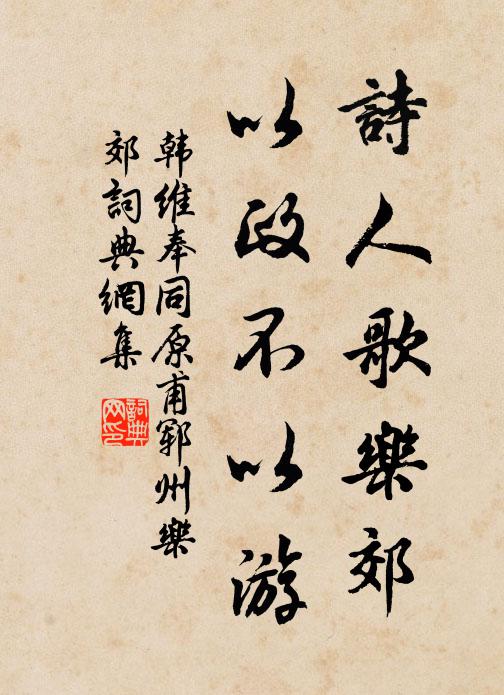 詩人歌樂郊
以政不以游
韩維奉同原甫鄆州樂
郊詞典網集
詞典
网印